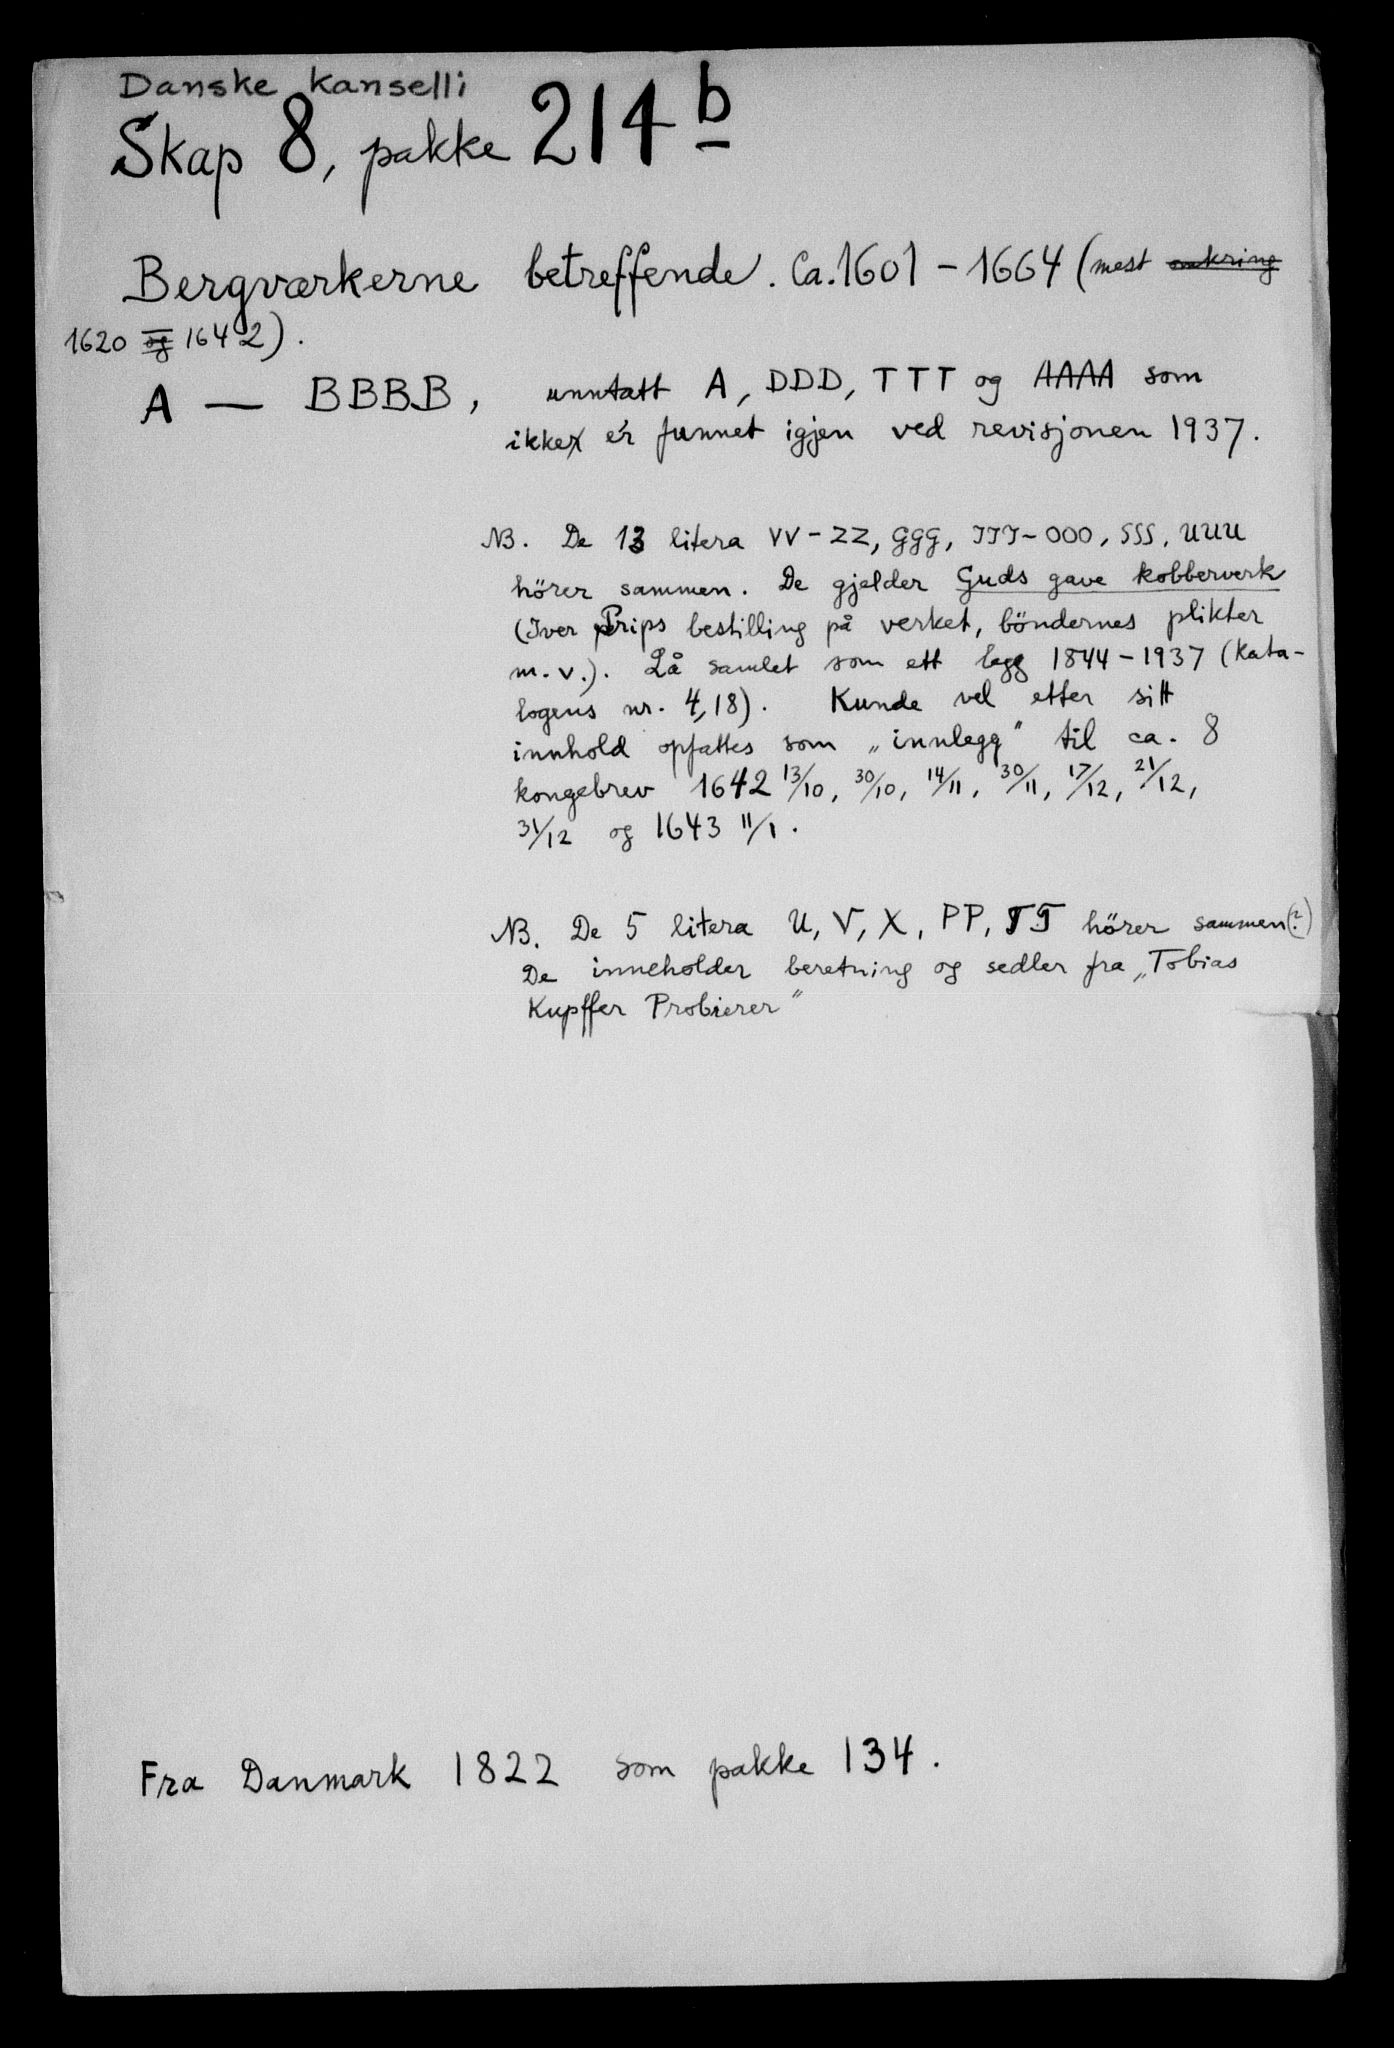 Danske Kanselli
Skap 8, pakke 214 b
Bergværkerne betreffende. Ca. 1601 - 1664 (mest omkring
1620 og 1642).
A — BBBB, unntatt A, DDD, TTT og AAAA som
ikke er funnet igjen ved revisjonen 1937.
NB. De 13 litera VV - ZZ, GGG, JJJ - OOO, SSS, UUU
hörer sammen. De gjelder Guds gave kobberverk
(Iver Prips bestilling på verket, böndernes plikter
m.v.). Lå samlet som ett legg 1844 - 1937 (Kata-
logens nr. 4,18). Kunde vel etter sitt
innhold opfattes som „innlegg" til ca. 8
kongebrev 1642 13/10, 30/10, 14/11, 30/11, 17/12, 21/12,
31/12 og 1643 11/1.
NB. De 5 litera U, V, X, PP, TT hörer sammen(?)
De inneholder beretning og sedler fra „Tobias
Kupffer Probierer"
Fra Danmark 1822 som pakke 134.